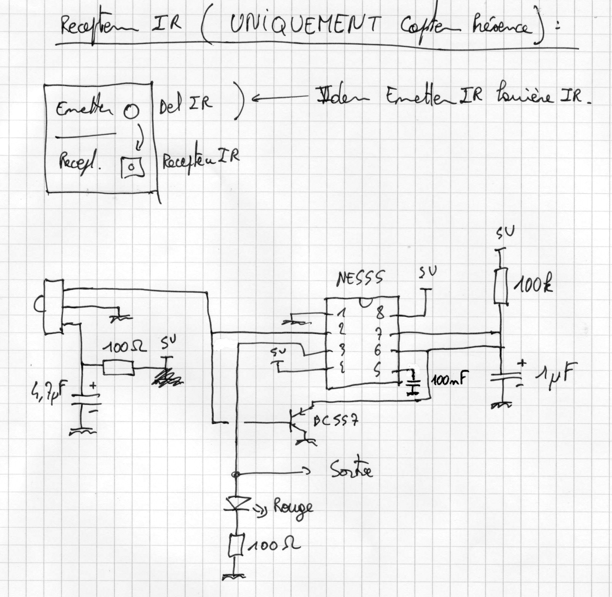 Recepteur IR ( UNIQUEMENT Capteur Présence ) :
Emetteur Del IR Idem Emetteur IR barrière IR.
Recept. Recepteur IR
5V
NE555 5V 100k
1 8
2 7
100Ω 5V 3 6
5V 4 5 100nF 1µF
4,7µF
BC557
Sortie
Rouge
100Ω